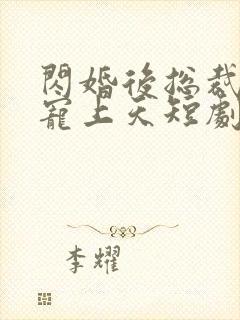 閃婚後總裁
寵上天短劇
李耀